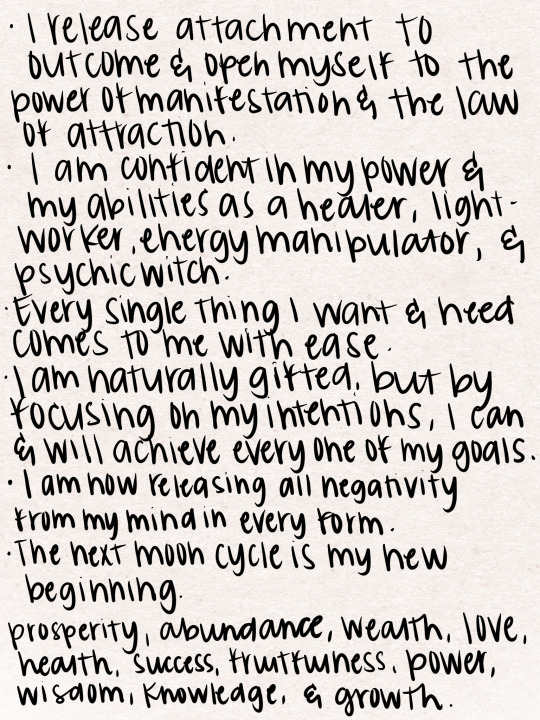 · I release attachment to
outcome & open myself to the
power of manifestation & the law
of attraction.
· I am confident in my power &
my abilities as a healer, light-
worker, energy manipulator, &
psychic witch.
· Every single thing I want & need
comes to me with ease.
· I am naturally gifted, but by
focusing on my intentions, I can
& will achieve every one of my goals.
· I am now releasing all negativity
from my mind in every form.
· The next moon cycle is my new
beginning.
prosperity, abundance, wealth, love,
health, success, fruitfulness, power,
wisdom, knowledge, & growth.